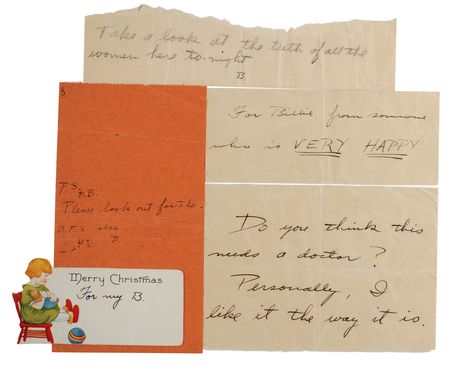 Take a look at the teeth of all the
women here to-night
B.
For Billie from someone
who is VERY HAPPY
8
P.S.
B.B.
Please look out for the
B.F.'s also
B.
Do you think this
needs a doctor?
Personally, I
like it the way it is.
Merry Christmas
For my B.